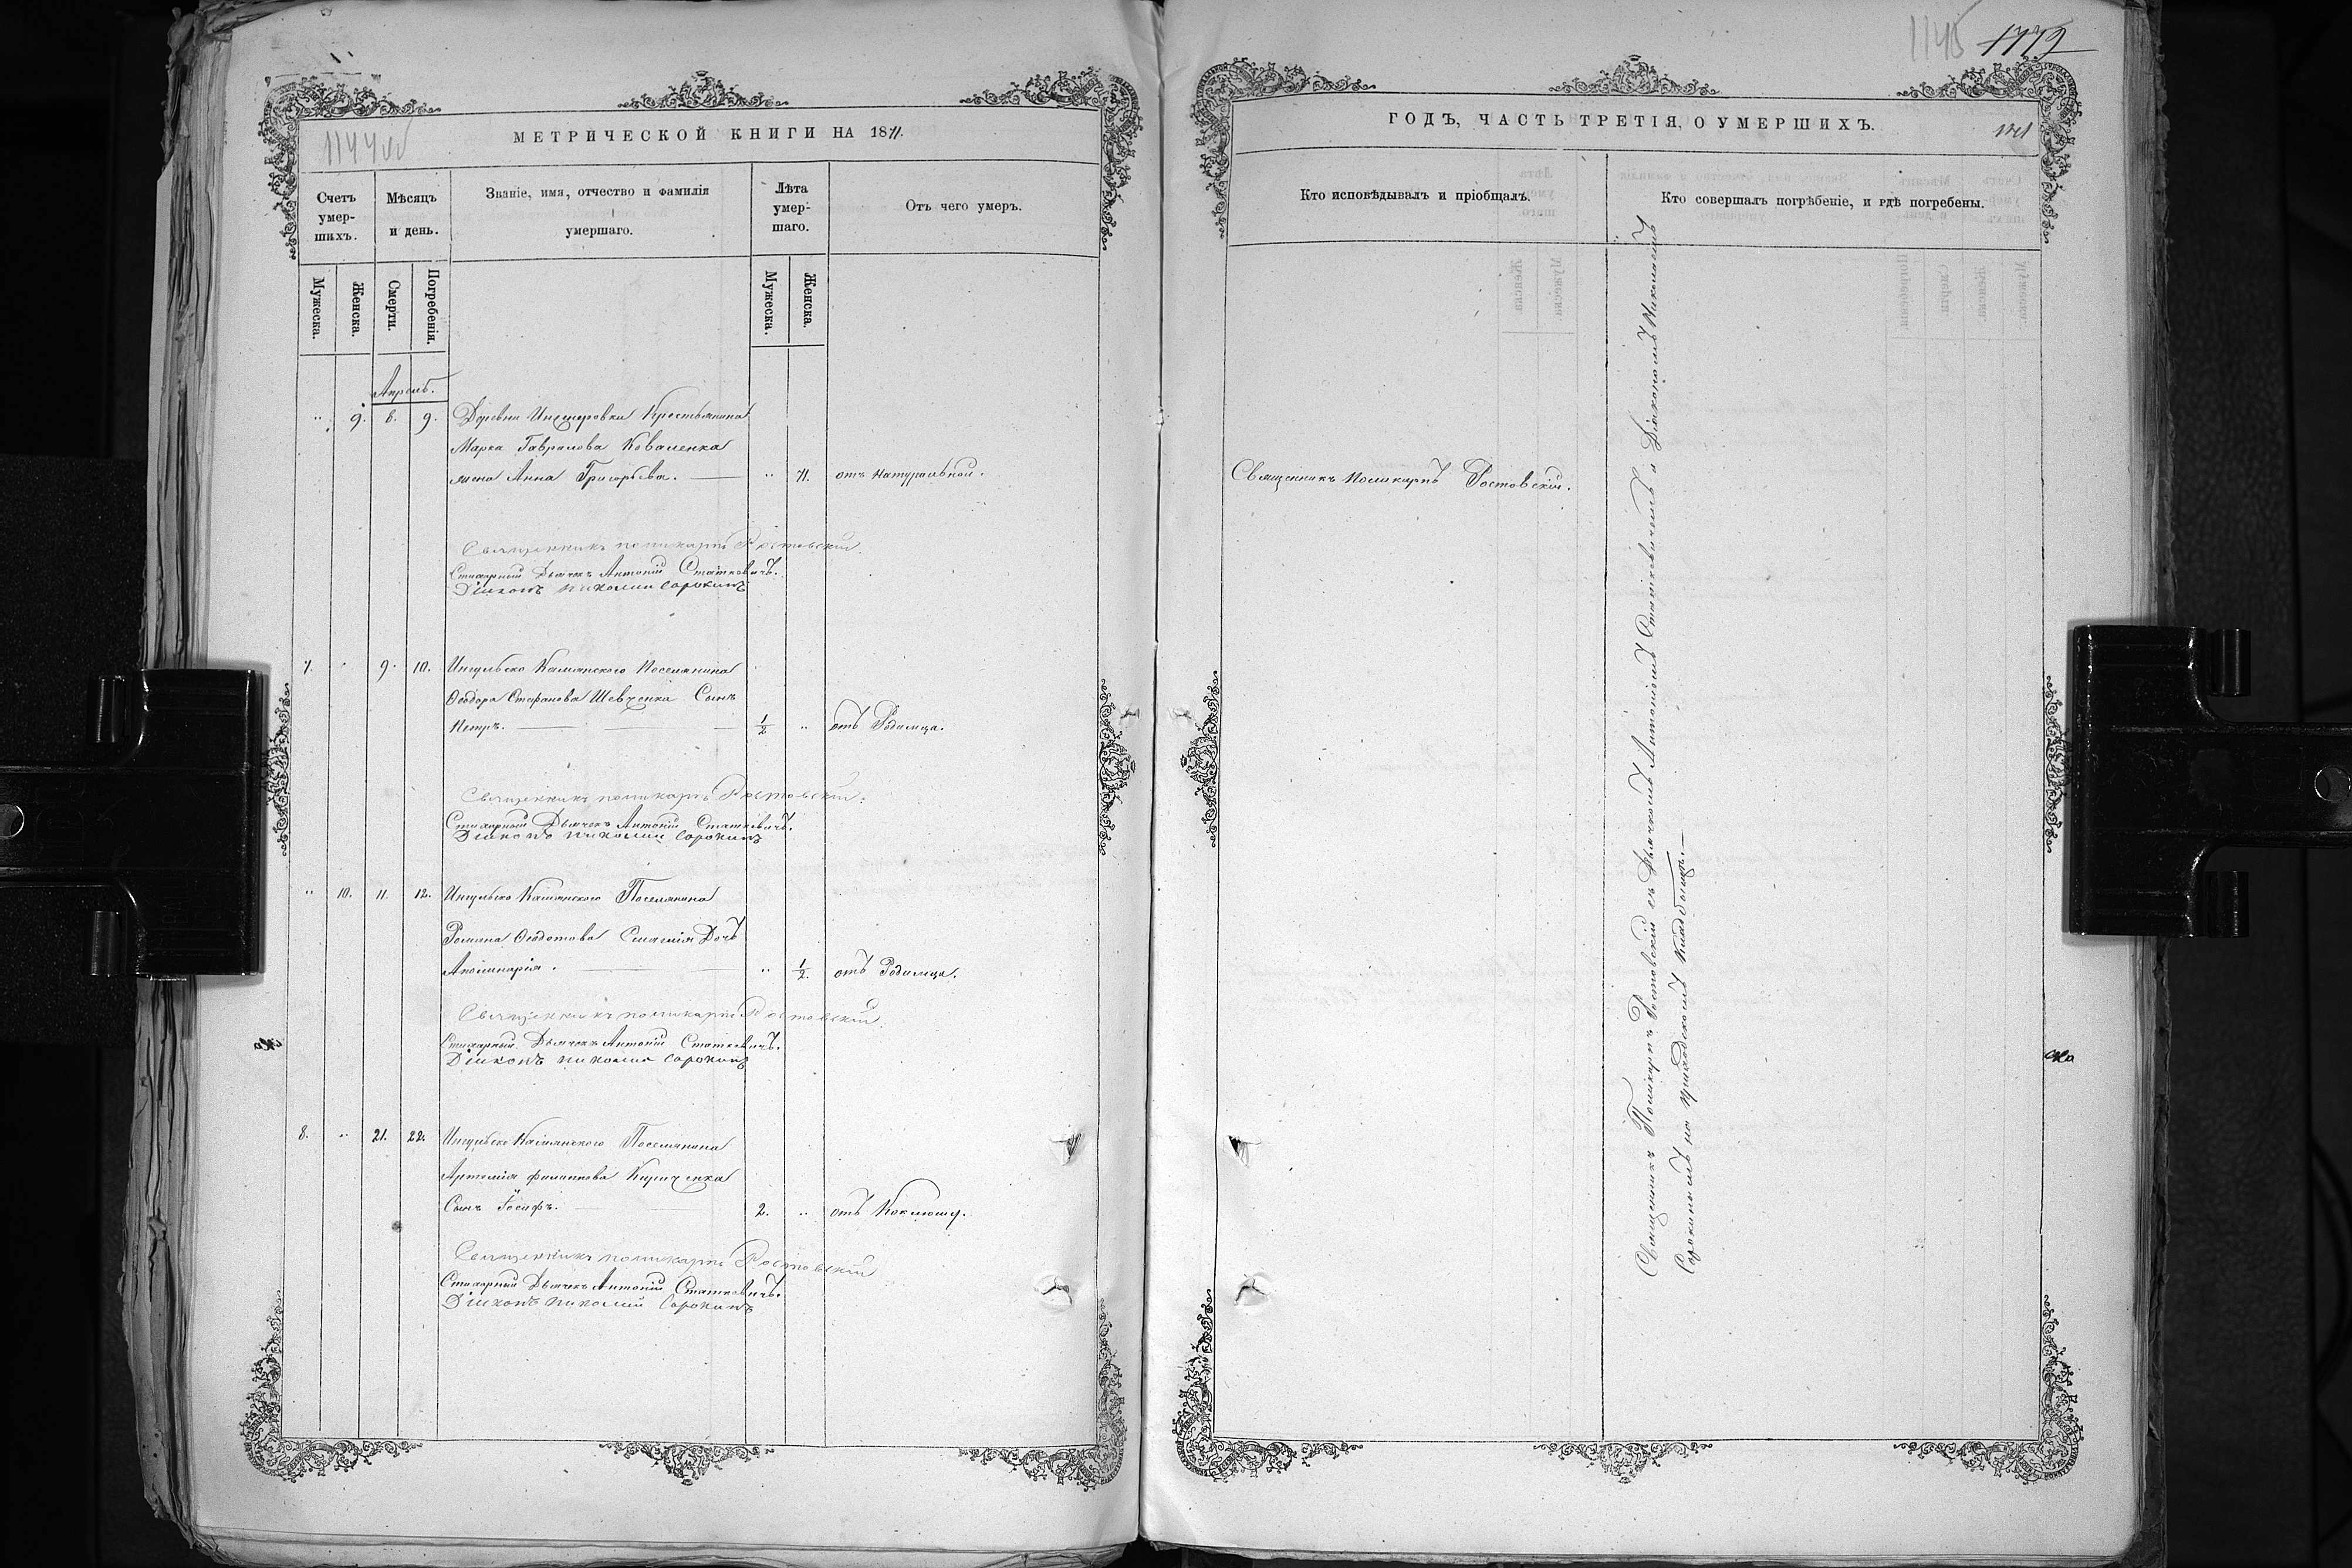 1144об
МЕТРИЧЕСКОЙ КНИГИ НА 1871.
Счетъ умер-шихъ.
Мѣсяцъ и день.
Званіе, имя, отчество и фамилія умершаго.
Лѣта умер-шаго.
Отъ чего умеръ.
Мужеска.
Женска.
Смерти.
Погребенія.
Мужеска.
Женска.
Апрель.
" 9. 8. 9. Деревни Крестьянина
Марка Гаврилова Коваленка
жена Анна Григорьева. " 71. отъ натуральной.
Священникъ поликарпъ Ростовскій.
Стихарный Дьячекъ Антоній Статкевичъ.
Діаконъ николай Сорокинъ
7. " 9. 10. Ингульско Каменского Поселянина
Ѳеодора Стефанова Шевченка Сынъ
Петръ. 1/2 " отъ Родимца.
Священникъ поликарпъ Ростовскій.
Стихарный Дьячекъ Антоній Статкевичъ.
Діаконъ николай Сорокинъ
" 10. 11. 12. Ингульско Каменского Поселянина
Романа Ѳеодотова Дочь
Аполинарія. " 1/2. отъ Родимца.
Священникъ поликарпъ Ростовскій.
Стихарный Дьячекъ Антоній Статкевичъ.
Діаконъ николай Сорокинъ
8. " 21. 22. Ингульско Каменского Поселянина
Артемія Филиппова Кириченка
Сынъ Іосифъ. 2. " отъ Коклюшу.
Священникъ поликарпъ Ростовскій
Стихарный Дьячекъ Антоній Статкевичъ.
Діаконъ николай Сорокинъ
1145 1772
ГОДЪ, ЧАСТЬ ТРЕТІЯ, О УМЕРШИХЪ.
Кто исповѣдывалъ и пріобщалъ.
Кто совершалъ погребеніе, и гдѣ погребены.
Священникъ Поликарпъ Ростовскій.
Священникъ Поликарпъ Ростовскій съ Дьячкомъ Антоніемъ Статкевичемъ и Діакономъ Николаемъ
Сорокинымъ на приходскомъ кладбищѣ.